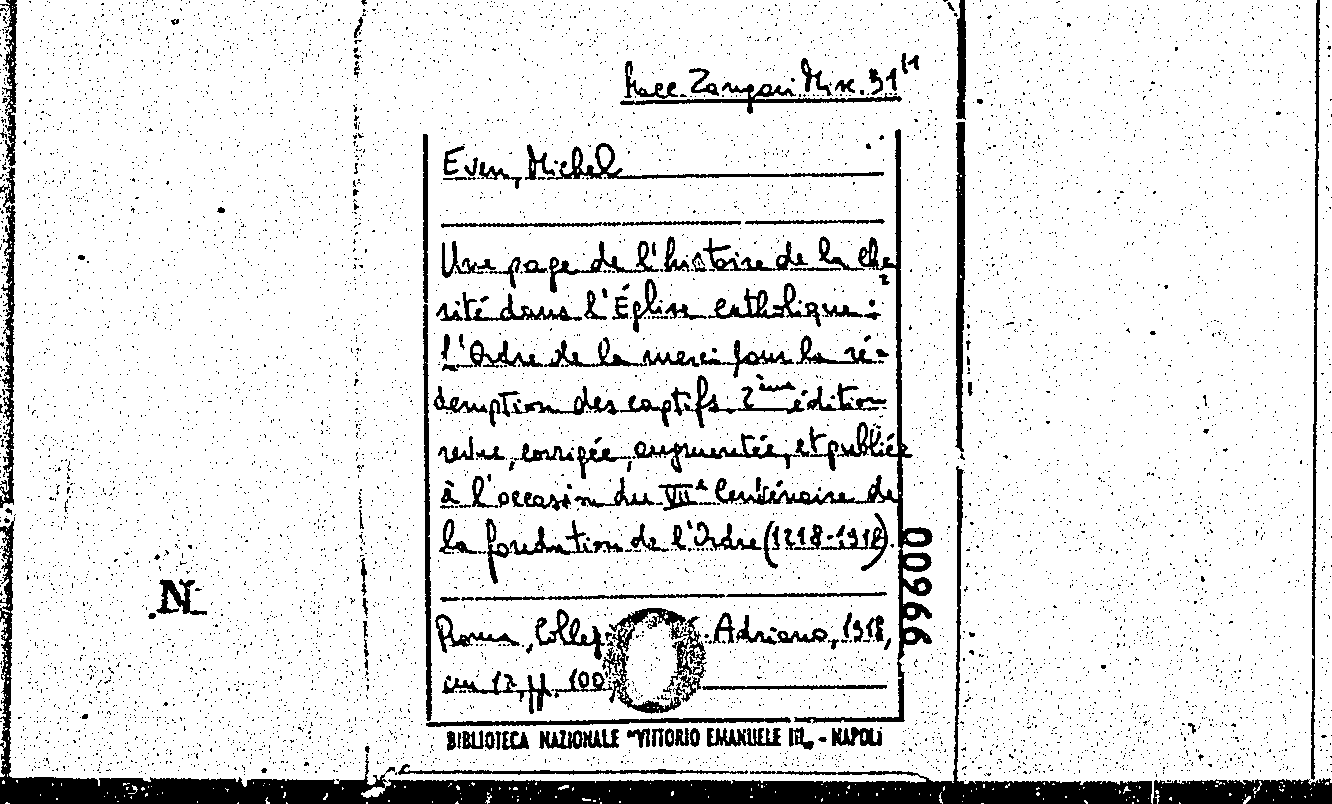 Race Zangari Misc. 31 (1
Even, Michel
Une page de l'histoire de la cha
rité dans l'Église catholique:
l'Ordre de la merci pour la ré=
demption des captifs. 2ème édition
revue, corrigée, augmentée, et publiée
à l'occasion du VIIe Centénaire de
la fondation de l'Ordre (1218-1918).
00966
N
Roma, Colleg. S. Adriano, 1918,
cm 17, pp. 100,
BIBLIOTECA NAZIONALE "VITTORIO EMANUELE III" - NAPOLI